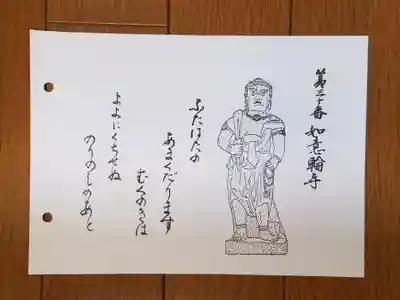 第三十番 如意輪寺
ふたはたの
あまくだります
むくのきは
よよにくちせぬ
のりのしのあと